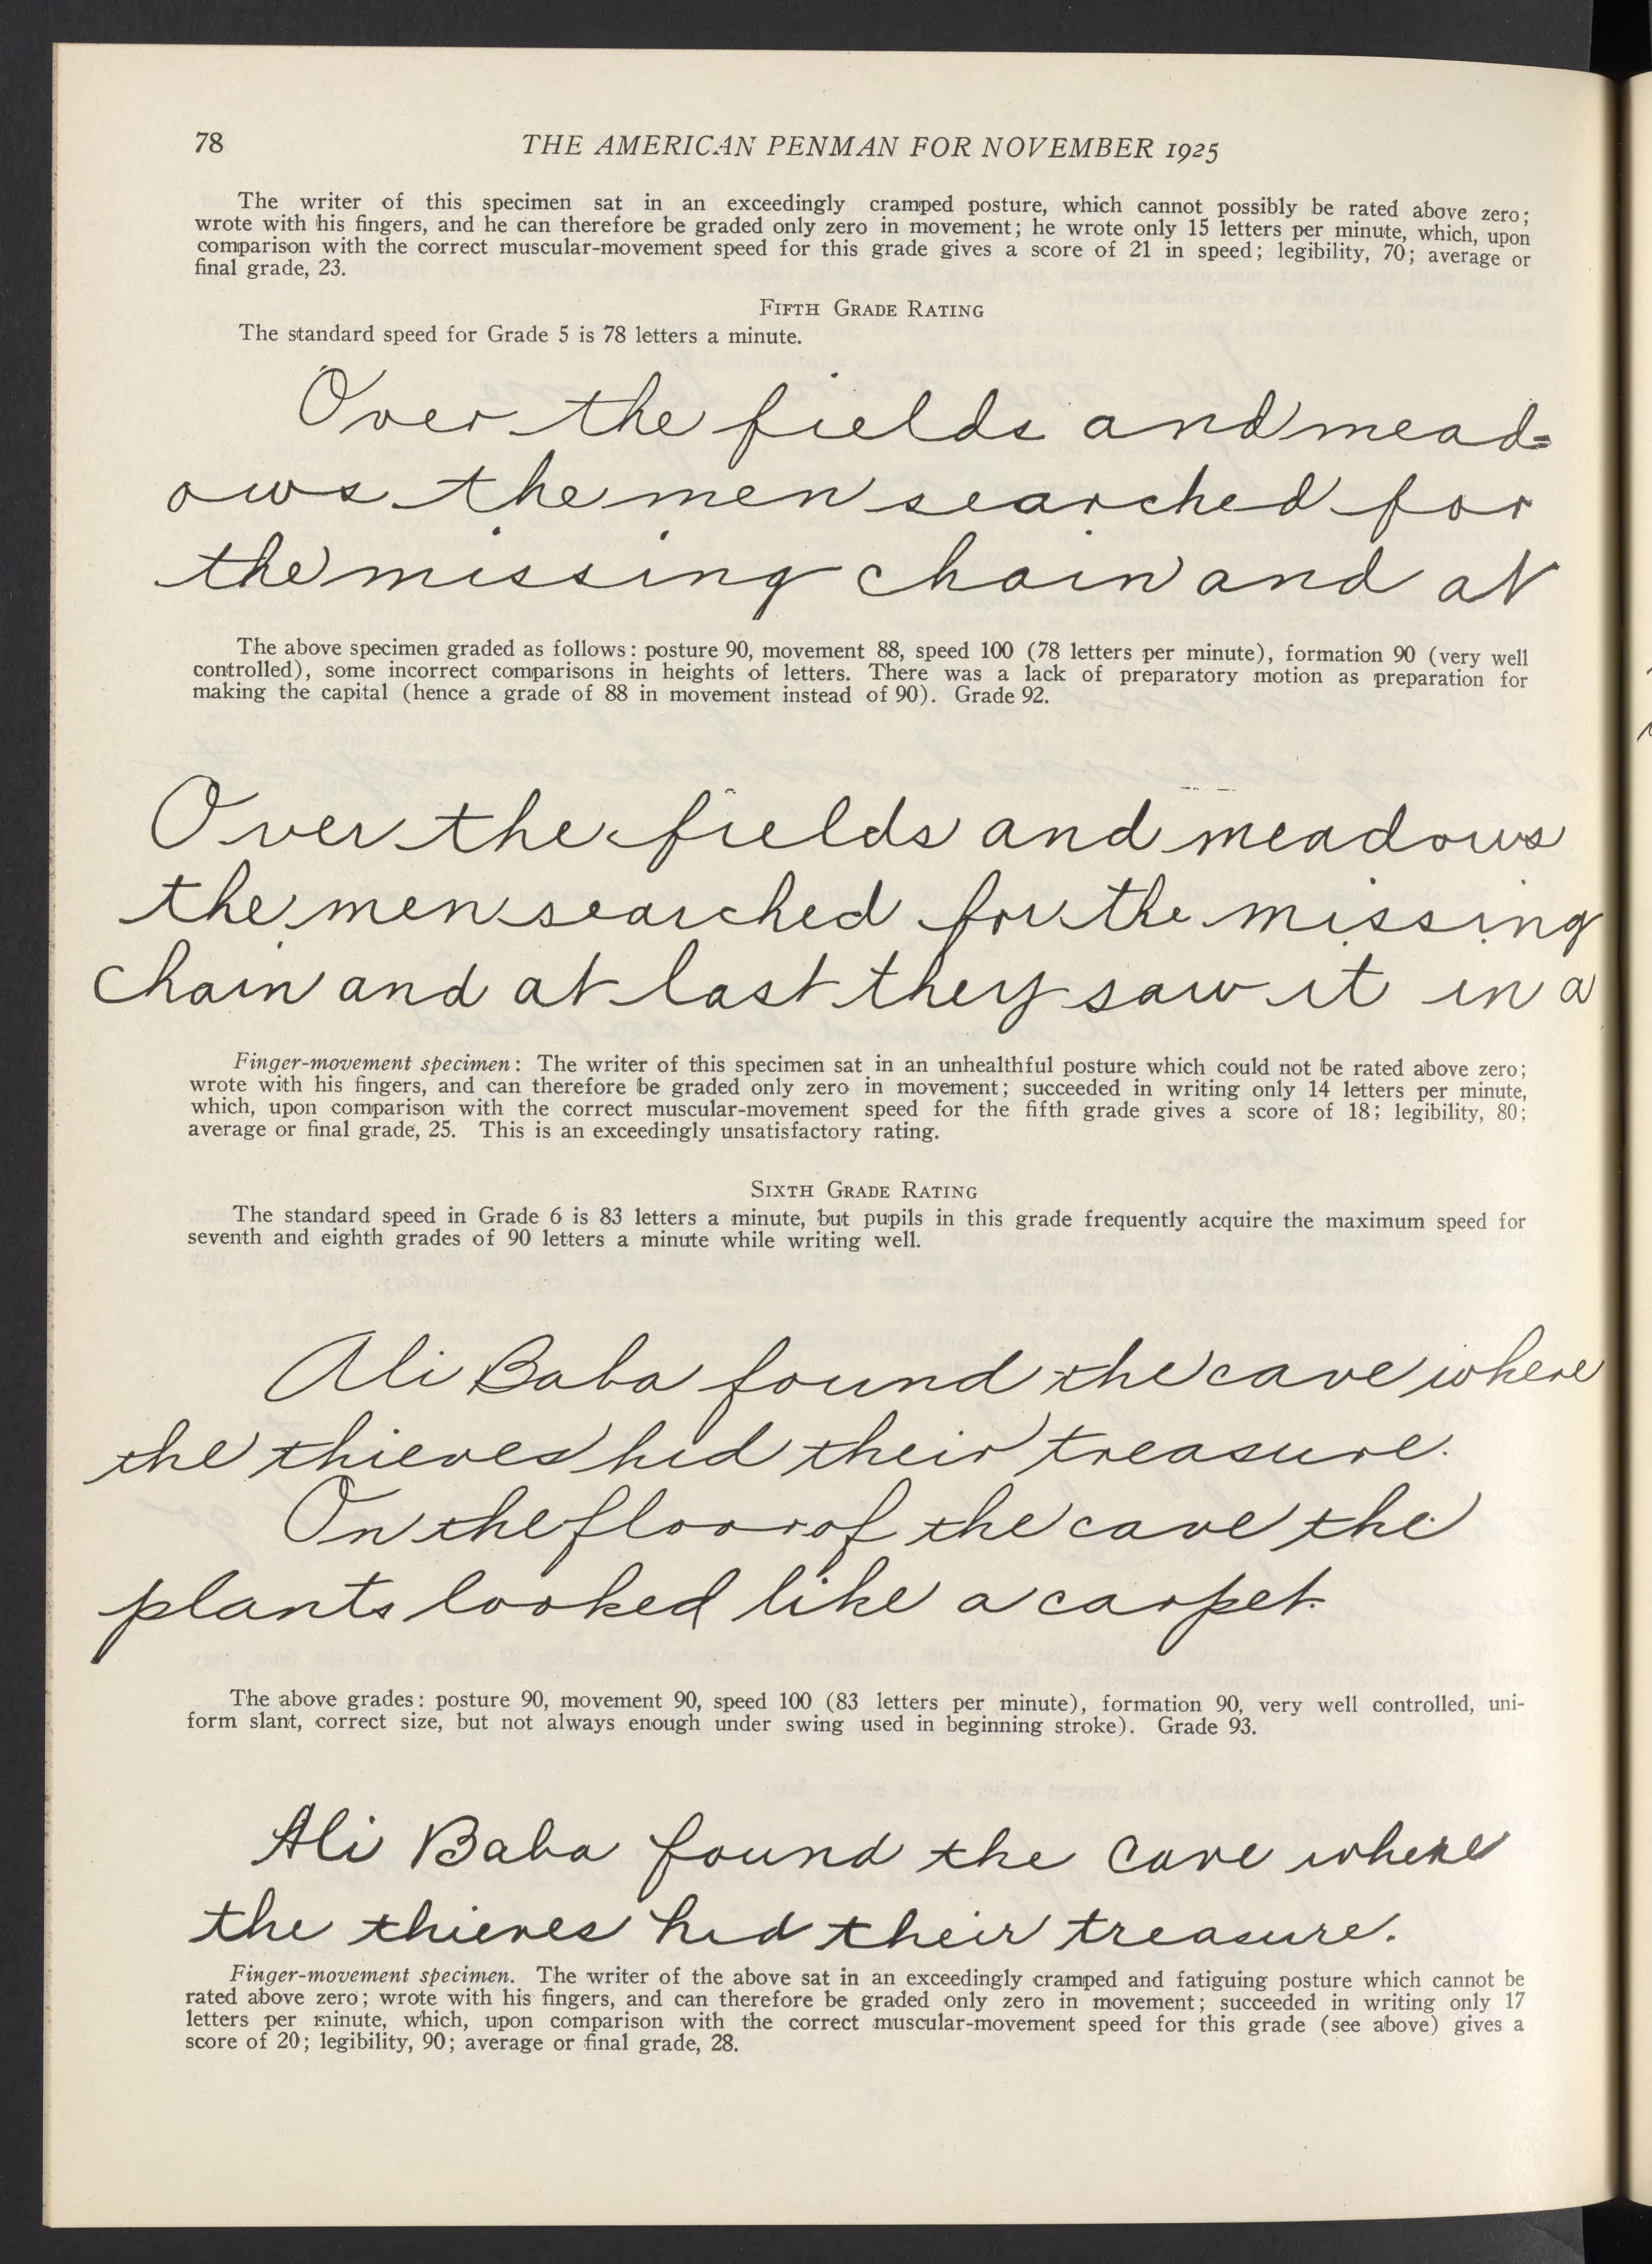 78
THE AMERICAN PENMAN FOR NOVEMBER 1925
The writer of this specimen sat in an exceedingly cramped posture, which cannot possibly be rated above zero;
wrote with his fingers, and he can therefore be graded only zero in movement; he wrote only 15 letters per minute, which, upon
comparison with the correct muscular-movement speed for this grade gives a score of 21 in speed; legibility, 70; average or
final grade, 23.
FIFTH GRADE RATING
The standard speed for Grade 5 is 78 letters a minute.
Over the fields and mead=
ows the men searched for
the missing chain and at
The above specimen graded as follows: posture 90, movement 88, speed 100 (78 letters per minute), formation 90 (very well
controlled), some incorrect comparisons in heights of letters. There was a lack of preparatory motion as preparation for
making the capital (hence a grade of 88 in movement instead of 90). Grade 92.
Over the fields and meadows
the men searched for the missing
chain and at last they saw it in a
Finger-movement specimen: The writer of this specimen sat in an unhealthful posture which could not be rated above zero;
wrote with his fingers, and can therefore be graded only zero in movement; succeeded in writing only 14 letters per minute,
which, upon comparison with the correct muscular-movement speed for the fifth grade gives a score of 18; legibility, 80;
average or final grade, 25. This is an exceedingly unsatisfactory rating.
SIXTH GRADE RATING
The standard speed in Grade 6 is 83 letters a minute, but pupils in this grade frequently acquire the maximum speed for
seventh and eighth grades of 90 letters a minute while writing well.
Ali Baba found the cave where
the thieves hid their treasure.
On the floor of the cave the
plants looked like a carpet.
The above grades: posture 90, movement 90, speed 100 (83 letters per minute), formation 90, very well controlled, uni-
form slant, correct size, but not always enough under swing used in beginning stroke). Grade 93.
Ali Baba found the cave where
the thieves hid their treasure.
Finger-movement specimen. The writer of the above sat in an exceedingly cramped and fatiguing posture which cannot be
rated above zero; wrote with his fingers, and can therefore be graded only zero in movement; succeeded in writing only 17
letters per minute, which, upon comparison with the correct muscular-movement speed for this grade (see above) gives a
score of 20; legibility, 90; average or final grade, 28.